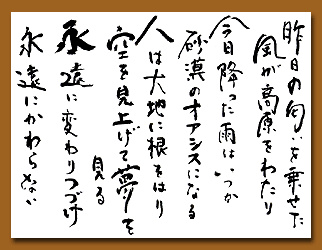 昨日の匂いを乗せた
風が高原をわたり
今日降った雨はいつか
砂漠のオアシスになる
人は大地に根をはり
空を見上げて夢を
見る
永遠に変わりつづけ
永遠にかわらない